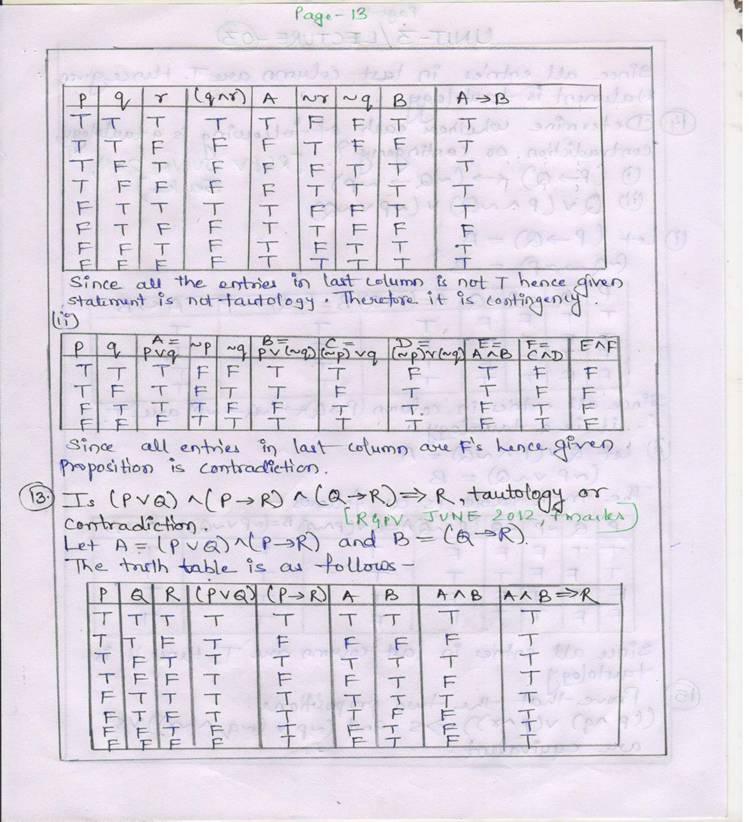 Page-13
p q r (q∧r) A ~r ~q B A→B
T T T T T F F T T
T T F F F T F F T
T F T F F F T T T
T F F F F T T T T
F T T T T F F T T
F T F F T T F F F
F F T F T F T T T
F F F F T T T T T
Since all the entries in last column is not T hence given
statement is not tautology. Therefore it is contingency.
(ii)
p q A= p∨q ~p ~q B= p∨(~q) C= (~p)∨q D= (~p)∨(~q) E= A∧B F= C∧D E∧F
T T T F F T T F T F F
T F T F T T F T T F F
F T T T F F T T F T F
F F F T T T T T F T F
Since all entries in last column are F's hence given
proposition is contradiction.
13. Is (P∨Q) ∧ (P→R) ∧ (Q→R) ⇒ R, tautology or
contradiction. [RGPV JUNE 2012, 7 marks]
Let A = (P∨Q) ∧ (P→R) and B = (Q→R).
The truth table is as follows-
P Q R (P∨Q) (P→R) A B A∧B A∧B ⇒R
T T T T T T T T T
T T F T F F F F T
T F T T T T T T T
T F F T F F T F T
F T T T T T T T T
F T F T T T F F T
F F T F T F T F T
F F F F T F T F T